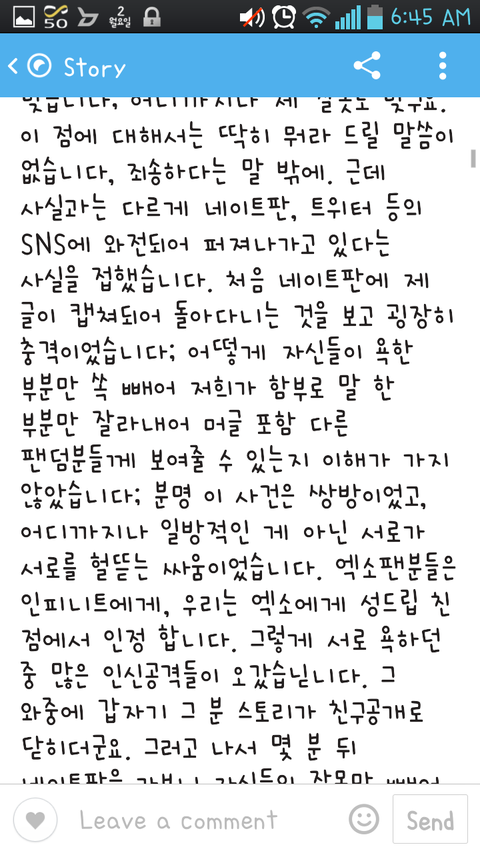 50 2 월요일 6:45 AM
Story
맞습니다, 어디까지나 제 잘못도 맞구요.
이 점에 대해서는 딱히 뭐라 드릴 말씀이
없습니다, 죄송하다는 말 밖에. 근데
사실과는 다르게 네이트판, 트위터 등의
SNS에 와전되어 퍼져나가고 있다는
사실을 접했습니다. 처음 네이트판에 제
글이 캡쳐되어 돌아다니는 것을 보고 굉장히
충격이었습니다; 어떻게 자신들이 욕한
부분만 쏙 빼어 저희가 함부로 말 한
부분만 잘라내어 머글 포함 다른
팬덤분들께 보여줄 수 있는지 이해가 가지
않았습니다; 분명 이 사건은 쌍방이었고,
어디까지나 일방적인 게 아닌 서로가
서로를 헐뜯는 싸움이었습니다. 엑소팬분들은
인피니트에게, 우리는 엑소에게 성드립 친
점에서 인정 합니다. 그렇게 서로 욕하던
중 많은 인신공격들이 오갔습닏니다. 그
와중에 갑자기 그 분 스토리가 친구공개로
닫히더군요. 그러고 나서 몇 분 뒤
Leave a comment Send